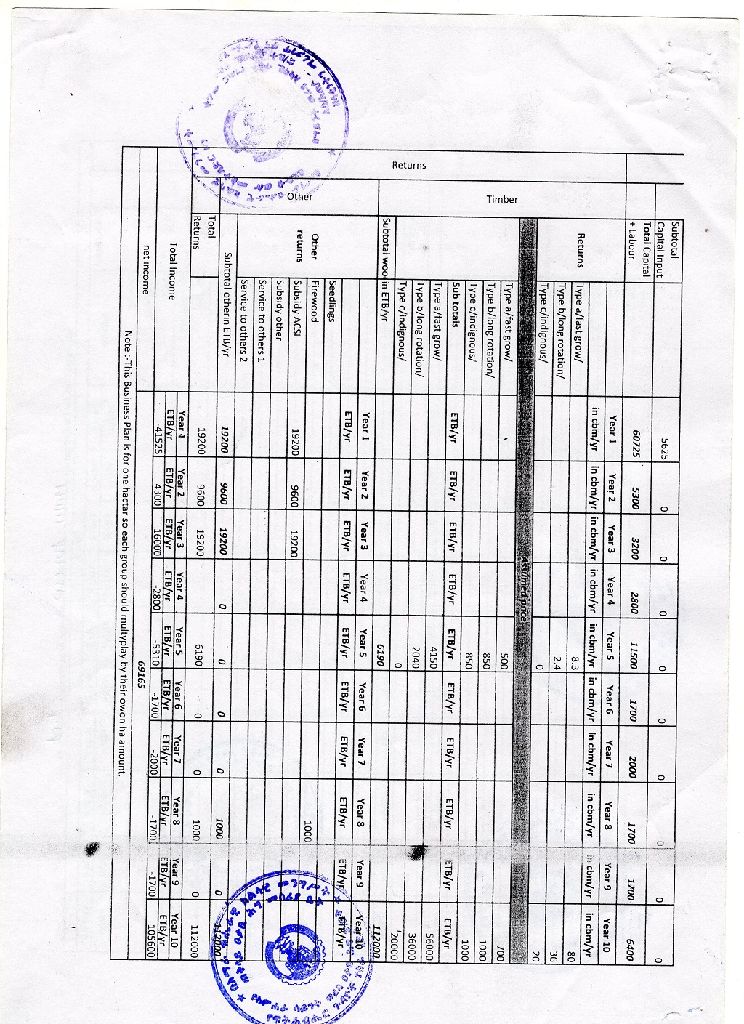 Subtotal Capital Input 5625 0 0 0 0 0 0 0 0 0
Total Capital + Labour 60725 5300 3200 2800 11500 1700 2000 1700 1700 6400
Year 1 Year 2 Year 3 Year 4 Year 5 Year 6 Year 7 Year 8 Year 9 Year 10
in cbm/yr in cbm/yr in cbm/yr in cbm/yr in cbm/yr in cbm/yr in cbm/yr in cbm/yr in cbm/yr in cbm/yr
Returns
Timber
Returns
Type a/fast grow/ 8.3 80
Type b/long rotation/ 2.4 36
Type c/indignous/ 0 20
Type a/fast grow/ 500 700
Type b/long rotation/ 850 1000
Type c/indignous/ 850 1000
Sub totals ETB/yr ETB/yr ETB/yr ETB/yr ETB/yr ETB/yr ETB/yr ETB/yr ETB/yr ETB/yr
Type a/fast grow/ 4150 56000
Type b/long rotation/ 2040 36000
Type c/indignous/ 0 20000
Subtotal wood in ETB/yr 6190 112000
Year 1 Year 2 Year 3 Year 4 Year 5 Year 6 Year 7 Year 8 Year 9 Year 10
ETB/yr ETB/yr ETB/yr ETB/yr ETB/yr ETB/yr ETB/yr ETB/yr ETB/yr ETB/yr
Other
Other returns
Seedlings
Firewood 1000
Subsidy ACSI 19200 9600 19200
Subsidy other
Service to others 1
Service to others 2
Subtotal other in ETB/yr 19200 9600 19200 0 0 0 0 1000 0
Total Returns 19200 9600 19200 6190 0 0 1000 0 112000
Year 1 Year 2 Year 3 Year 4 Year 5 Year 6 Year 7 Year 8 Year 9 Year 10
Total Income ETB/yr ETB/yr ETB/yr ETB/yr ETB/yr ETB/yr ETB/yr ETB/yr ETB/yr ETB/yr
41525 4300 16000 -2800 -5310 -1700 -2000 -1700 105600
net income 69165
Note :-This Business Plan is for one hactar so each group should multyplay by their owon ha amount.